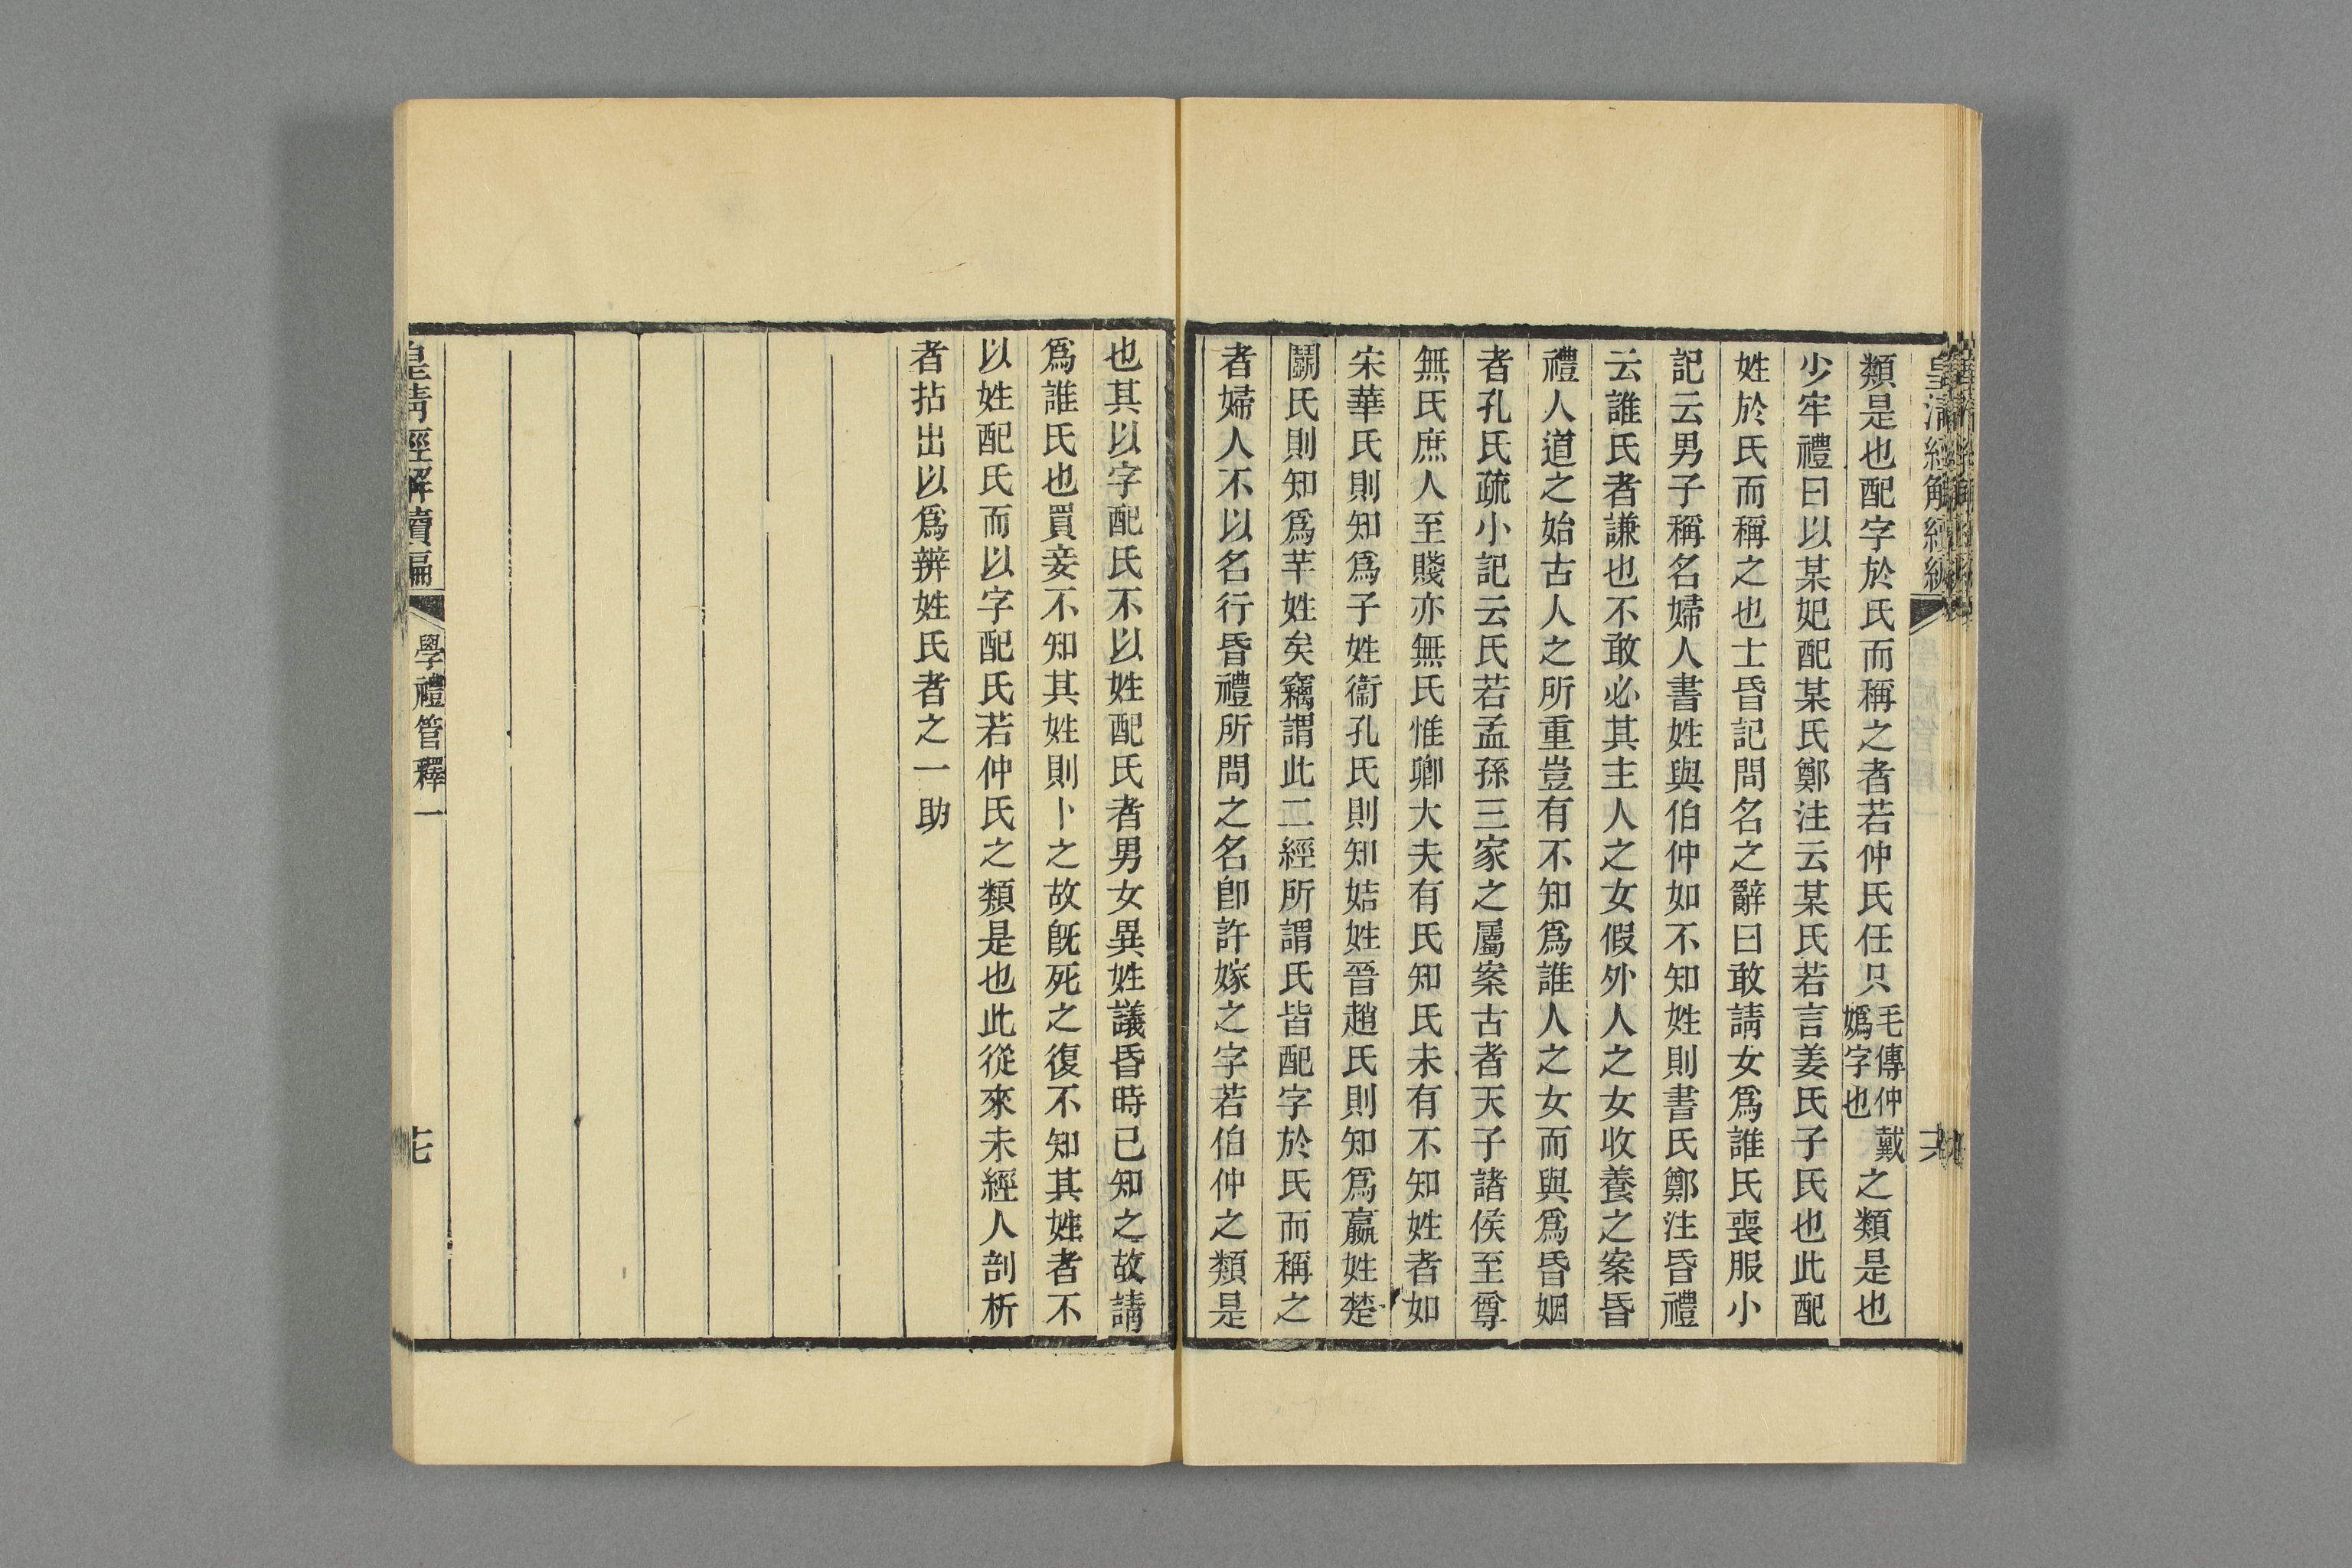 類是也配字於氏而稱之者若仲氏任只毛傳仲戴嬀字也之類是也
少牢禮曰以某妃配某氏鄭注云某氏若言姜氏子氏也此配
姓於氏而稱之也士昏記問名之辭曰敢請女爲誰氏喪服小
記云男子稱名婦人書姓與伯仲如不知姓則書氏鄭注昏禮
云誰氏者謙也不敢必其主人之女假外人之女收養之案昏
禮人道之始古人之所重豈有不知爲誰人之女而與爲昏姻
者孔氏疏小記云氏若孟孫三家之屬案古者天子諸侯至尊
無氏庶人至賤亦無氏惟卿大夫有氏知氏未有不知姓者如
宋華氏則知爲子姓衞孔氏則知姞姓晉趙氏則知爲嬴姓楚
鬭氏則知爲芈姓矣竊謂此二經所謂氏皆配字於氏而稱之
者婦人不以名行昏禮所問之名卽許嫁之字若伯仲之類是
也其以字配氏不以姓配氏者男女異姓議昏時已知之故請
爲誰氏也買妾不知其姓則卜之故旣死之復不知其姓者不
以姓配氏而以字配氏若仲氏之類是也此從來未經人剖析
者拈出以爲辨姓氏者之一助
皇清經解續編
學禮管釋一